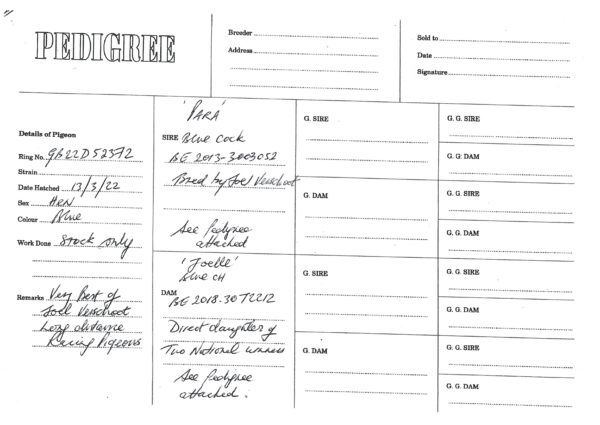 PEDIGREE
Breeder
Address
Sold to
Date
Signature
Details of Pigeon
Ring No. GB22D52372
Strain
Date Hatched 13/3/22
Sex HEN
Colour Blue
Work Done Stock only
Remarks Very Best of
Joel Verschoot
Long distance
Racing Pigeons
'PARA'
SIRE Blue Cock
BE 2013-3003052
Bred by Joel Verschoot
See Pedigree
attached
'Joelle'
Blue CH
DAM
BE 2018.3072212
Direct daughter of
Two National winners
See Pedigree
attached.
G. SIRE
G. DAM
G. SIRE
G. DAM
G. G. SIRE
G. G. DAM
G. G. SIRE
G. G. DAM
G. G. SIRE
G. G. DAM
G. G. SIRE
G. G. DAM